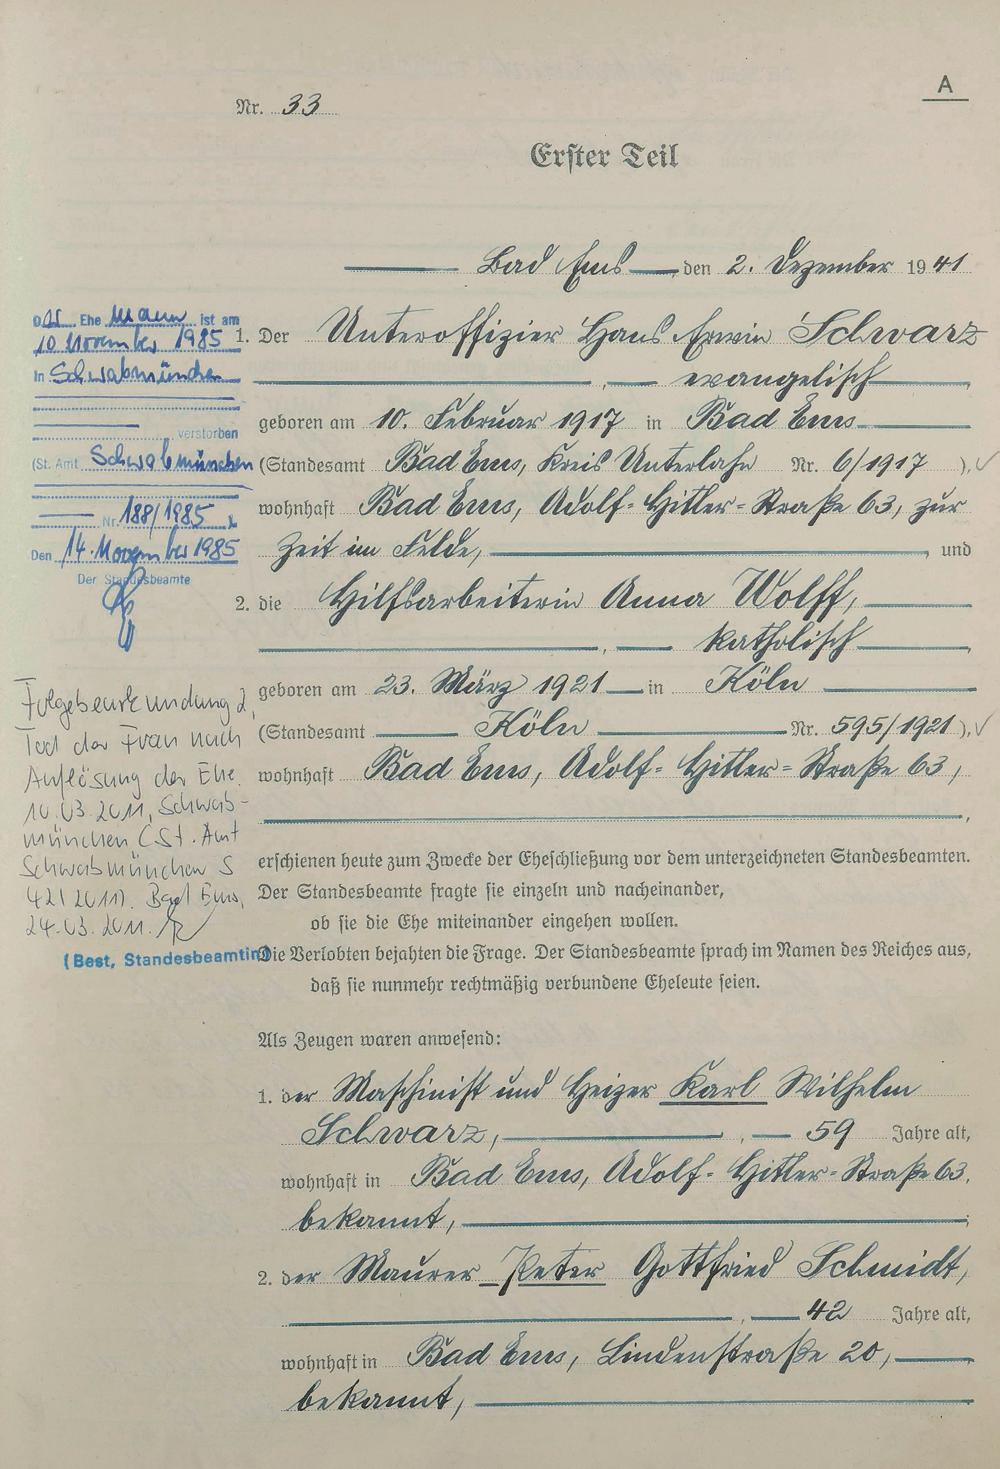 A
Nr. 33
Erster Teil
Bad Ems den 2. Dezember 1941
1. Der Unteroffizier Hans Erwin Schwarz
, evangelisch,
geboren am 10. Februar 1917 in Bad Ems
(Standesamt Bad Ems, Kreis Unterlahn Nr. 6/1917 ),
wohnhaft Bad Ems, Adolf-Hitler-Straße 63, zur
Zeit im Felde, , und
2. die Hilfsarbeiterin Anna Wolff,
, katholisch,
geboren am 23. März 1921 in Köln
(Standesamt Köln Nr. 595/1921 ),
wohnhaft Bad Ems, Adolf-Hitler-Straße 63,
,
erschienen heute zum Zwecke der Eheschließung vor dem unterzeichneten Standesbeamten.
Der Standesbeamte fragte sie einzeln und nacheinander,
ob sie die Ehe miteinander eingehen wollen.
Die Verlobten bejahten die Frage. Der Standesbeamte sprach im Namen des Reiches aus,
daß sie nunmehr rechtmäßig verbundene Eheleute seien.
Als Zeugen waren anwesend:
1. der Maschinist und Heizer Karl Wilhelm
Schwarz, , 59 Jahre alt,
wohnhaft in Bad Ems, Adolf-Hitler-Straße 63.
bekannt, ;
2. der Maurer Peter Gottfried Schmidt,
, 42 Jahre alt,
wohnhaft in Bad Ems, Lindenstraße 20,
bekannt,
Der Ehe mann ist am
10. November 1985
in Schwabmünchen
verstorben
(St. Amt Schwabmünchen
Nr. 188/1985
Den 14. November 1985
Der Standesbeamte
Folgebeurkundung 2,
Tod der Frau nach
Auflösung der Ehe.
10.03.2011, Schwab-
münchen (St. Amt
Schwabmünchen S
42/2011). Bad Ems,
24.03.2011.
(Best, Standesbeamtin)